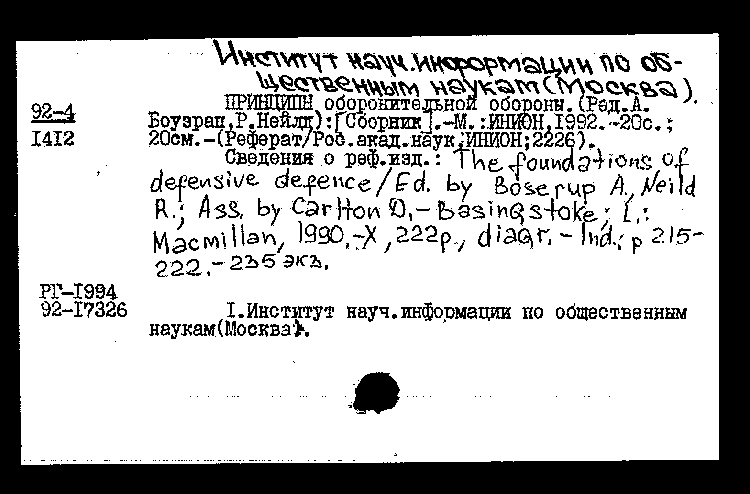 Институт науч.информации по об-
щественным наукам(Москва).
92-4
ПРИНЦИПЫ оборонительной обороны.(Ред.А.
Боузрап,Р.Нейлд):[Сборник].-М.:ИНИОН,1992.-20с.;
I4I2
20см.-(Реферат/Рос.акад.наук,ИНИОН;2226).
Сведения о реф.изд.: The foundations of
defensive defence/Ed. by Boserup A., Neild
R.; Ass. by Carlton D.-Basingstoke; L.:
Macmillan, 1990.-X, 222p., diagr.-Ind.: p 215-
222.-235 экз.
РГ-I994
92-I7326
I.Институт науч.информации по общественным
наукам(Москва).